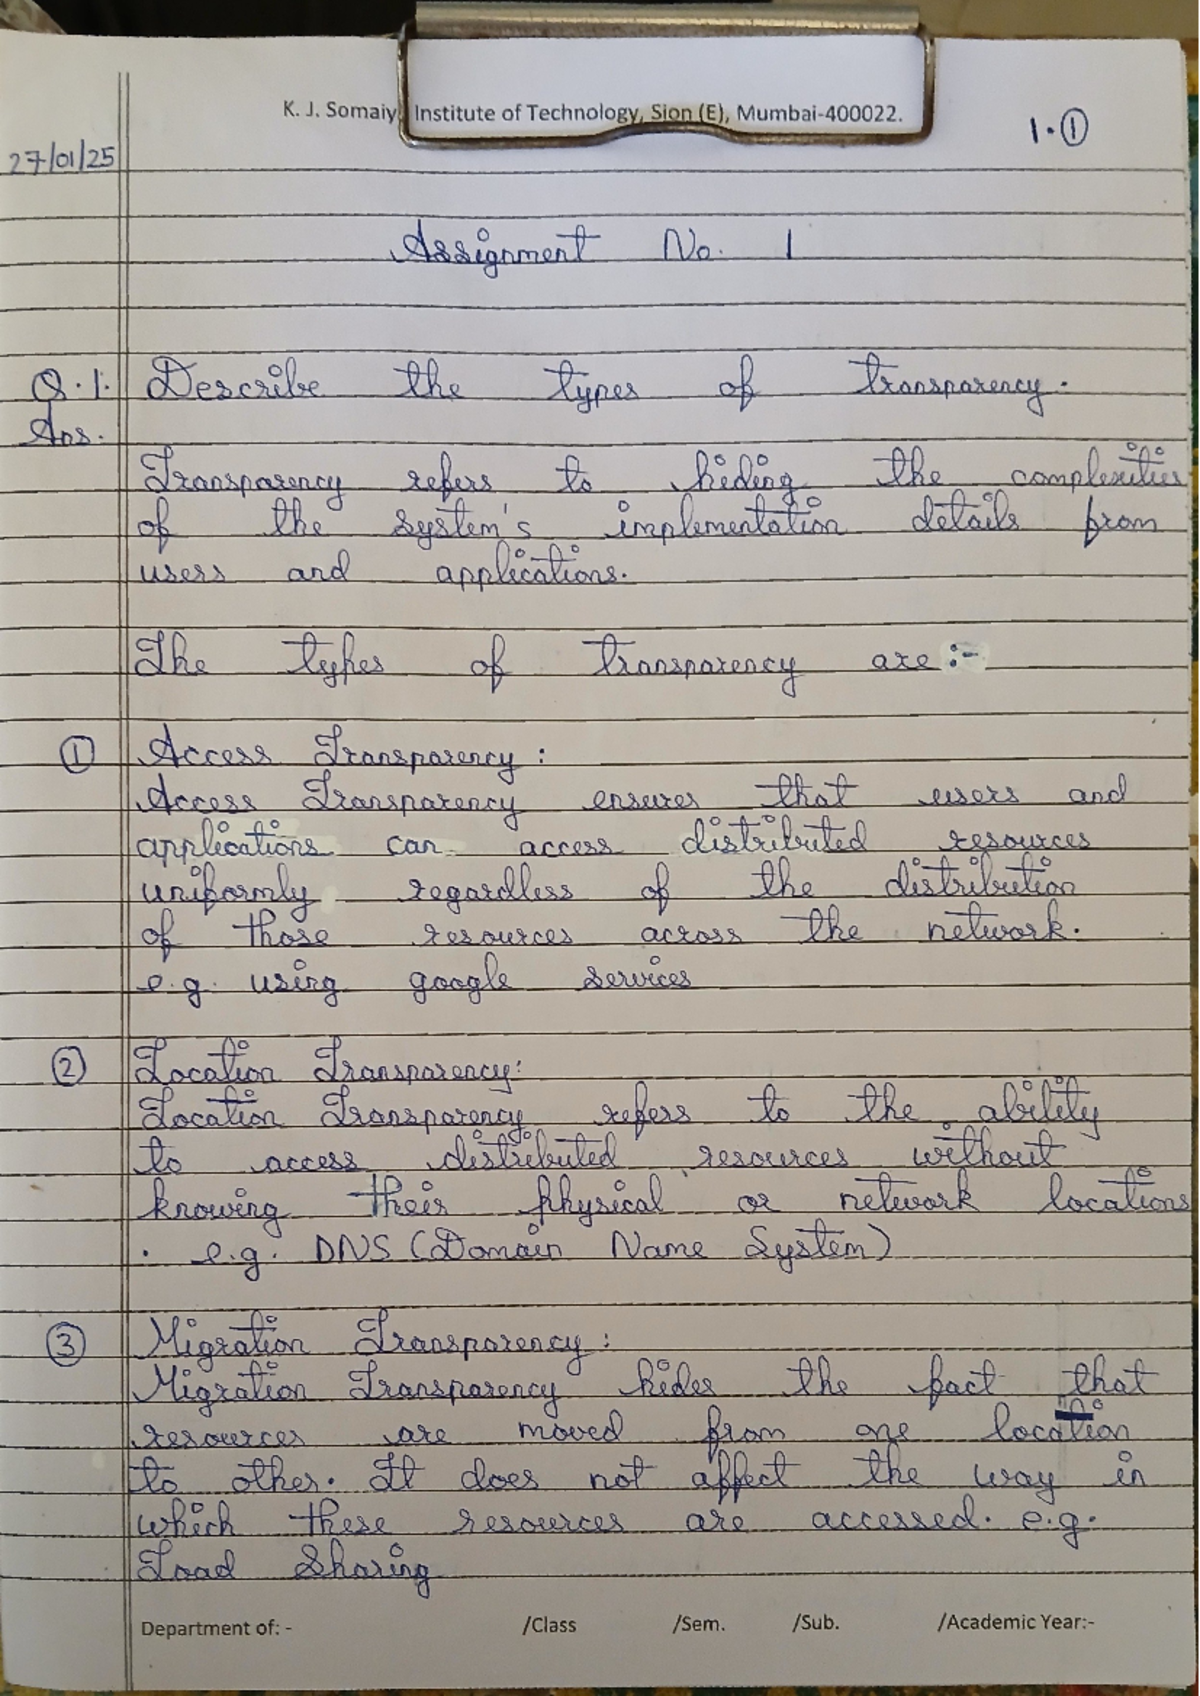 K. J. Somaiy Institute of Technology, Sion (E), Mumbai-400022.
1.①
27/01/25
Assignment No. 1
Q.1. Describe the types of transparency.
Ans.
Transparency refers to hiding the complexities
of the system's implementation details from
users and applications.
The types of transparency are :-
① Access Transparency :
Access Transparency ensures that users and
applications can access distributed resources
uniformly regardless of the distribution
of those resources across the network.
e.g. using google services
② Location Transparency:
Location Transparency refers to the ability
to access distributed resources without
knowing their physical or network locations
. e.g. DNS (Domain Name System)
③ Migration Transparency :
Migration Transparency hides the fact that
resources are moved from one location
to other. It does not affect the way in
which these resources are accessed. e.g.
Load Sharing
Department of: - /Class /Sem. /Sub. /Academic Year:-